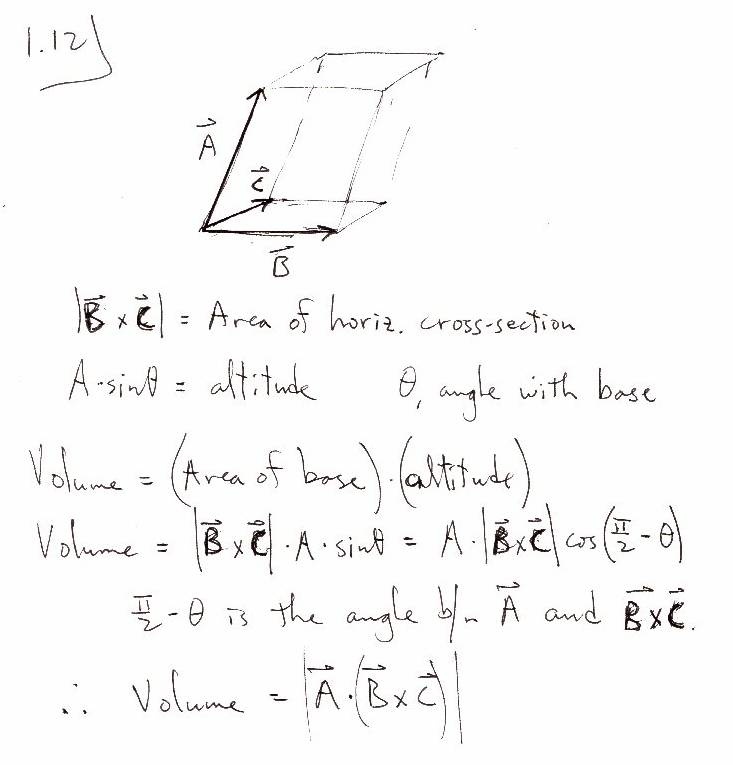 1.12)
A⃗
C⃗
B⃗
|B⃗ × C⃗| = Area of horiz. cross-section
A·sinθ = altitude θ, angle with base
Volume = (Area of base)·(altitude)
Volume = |B⃗ × C⃗|·A·sinθ = A·|B⃗×C⃗| cos(π/2 - θ)
π/2 - θ is the angle b/n A⃗ and B⃗×C⃗.
∴ Volume = |A⃗·(B⃗×C⃗)|